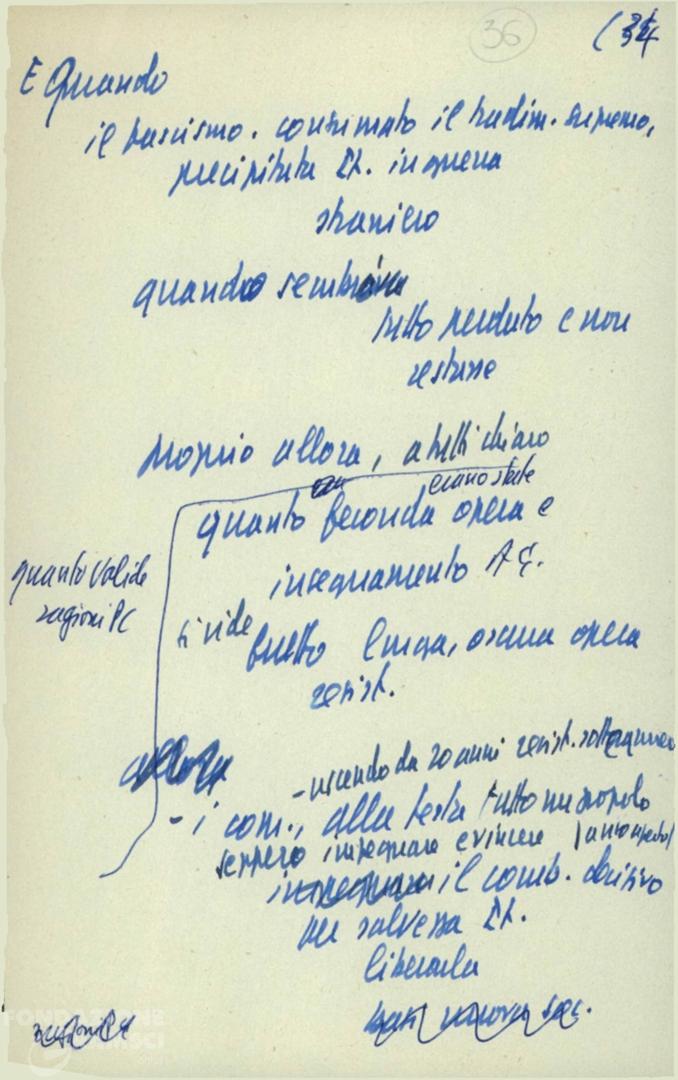 36
(34
E Quando
il fascismo. consumato il tradim. supremo,
precipitata It. in guerra
straniero
quando sembrava
tutto perduto e non
restasse
proprio allora, a tutti chiaro
erano state
quanto feconda opera e
insegnamento A G.
quanto valide
ragioni PC
si vide
frutto lunga, oscura opera
resist.
allora
- uscendo da 20 anni resist. sotterranea
- i com., alla testa tutto popolo
seppero impegnare e vincere
impegnare il comb. decisivo
per salvezza It.
liberarla
nuova soc.
ragioni PC
FONDAZIONE
GRAMSCI